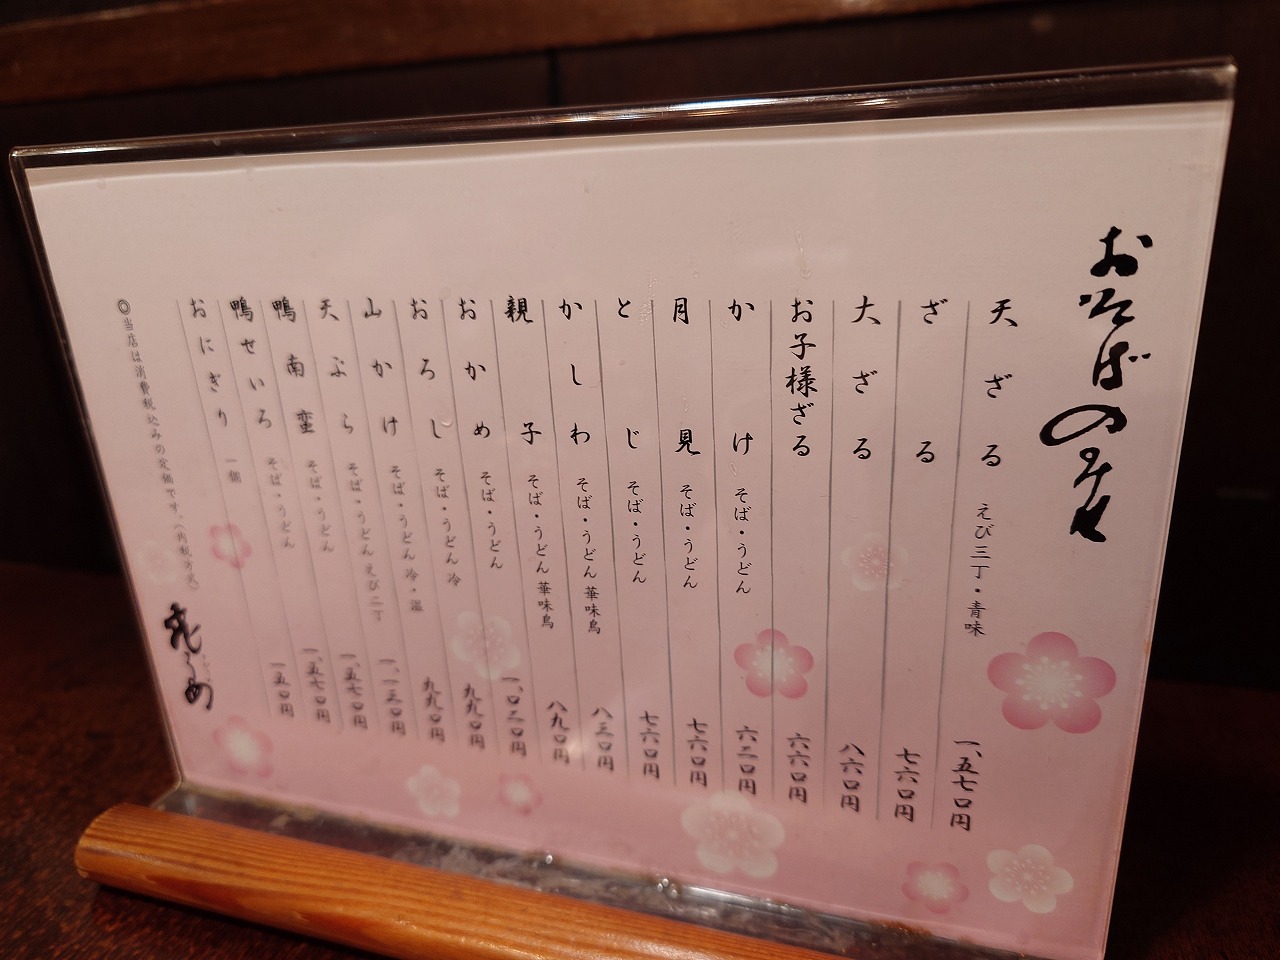 おそばのみせ
天ざる えび三丁・青味 一、五七〇円
ざる 七六〇円
大ざる 八六〇円
お子様ざる 六六〇円
かけ そば・うどん 六二〇円
月見 そば・うどん 七六〇円
とじ そば・うどん 七六〇円
かしわ そば・うどん 華味鳥 八三〇円
親子 そば・うどん 華味鳥 八九〇円
おかめ そば・うどん 一、〇二〇円
おろし そば・うどん 冷 九九〇円
山かけ そば・うどん 冷・温 九九〇円
天ぷら そば・うどん えび二丁 一、一三〇円
鴨南蛮 そば・うどん 一、五七〇円
鴨せいろ そば・うどん 一、五七〇円
おにぎり 一個 一五〇円
◎当店は消費税込みの定価です。(内税方式)